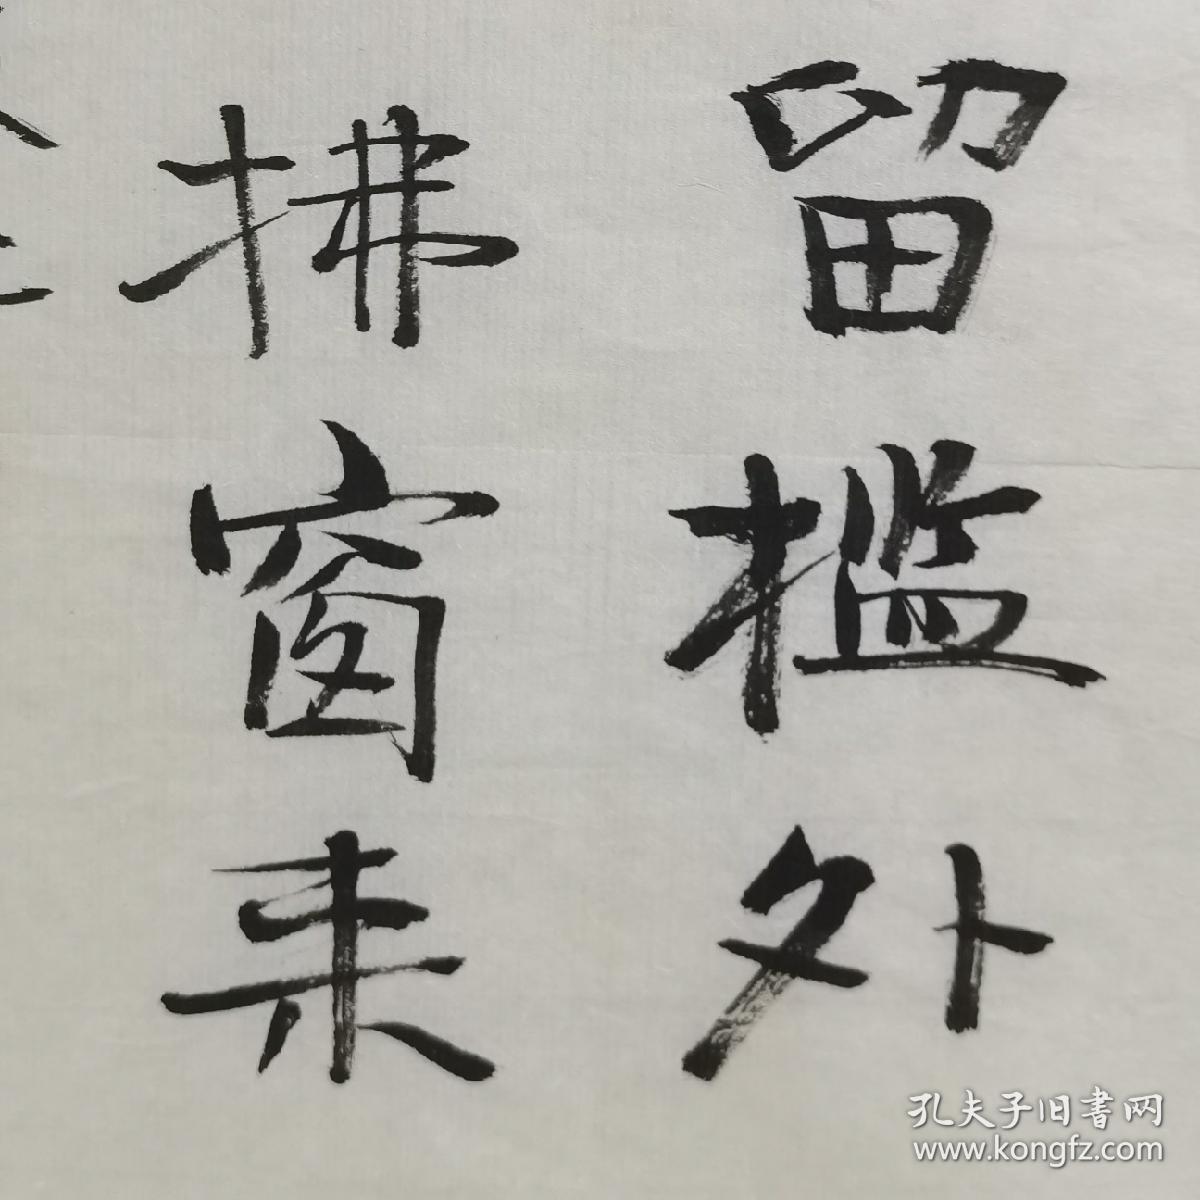 留槛外
拂窗来
孔夫子旧书网
www.kongfz.com